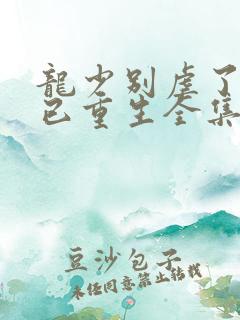 龍少别虐了
已重生全集
豆沙包子
未经同意禁止转载